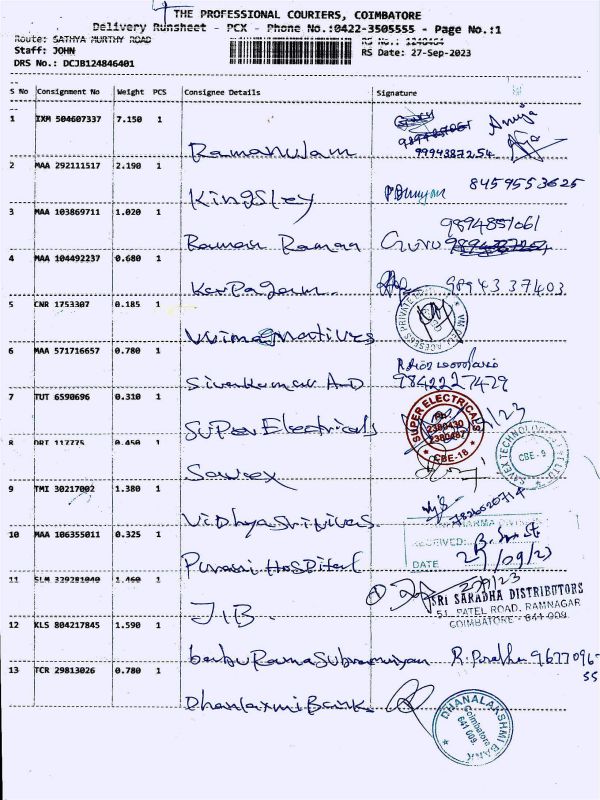 THE PROFESSIONAL COURIERS, COIMBATORE
Delivery Runsheet - PCX - Phone No.:0422-3505555 - Page No.:1
Route: SATHYA MURTHY ROAD
RS No.: 1248464
Staff: JOHN
RS Date: 27-Sep-2023
DRS No.: DCJB124846401
S No Consignment No Weight PCS Consignee Details Signature
1 IXM 504607337 7.150 1
9994387254
Ramanujam
2 MAA 292111517 2.190 1
8459553625
Kingsley
3 MAA 103869711 1.020 1
9894851061
Raman Raman Guru
4 MAA 104492237 0.680 1
Karpagam 9894337403
5 CNR 1753307 0.185 1
PRIVATE
6 MAA 571716657 0.780 1
Sivakumar A D 9842227479
7 TUT 6590696 0.310 1
SUPER ELECTRICALS
Ph:
2380430
2380487
CBE-18
Super Electricals
8 DRT 117775 0.450 1
CBE - 9
9 TMI 30217002 1.380 1
10 MAA 106355011 0.325 1
RECEIVED:
DATE 27/09/23
Hospital
11 SLM 329281040 1.460 1
SRI SARADHA DISTRIBUTORS
51, PATEL ROAD, RAMNAGAR
COIMBATORE - 641 009.
JIB
12 KLS 804217845 1.590 1
babu Ramasubramaniyan 9677096-
55
13 TCR 29813026 0.780 1
Dhanlaxmi Bank
DHANALAKSHMI BANK
Coimbatore
641 009.